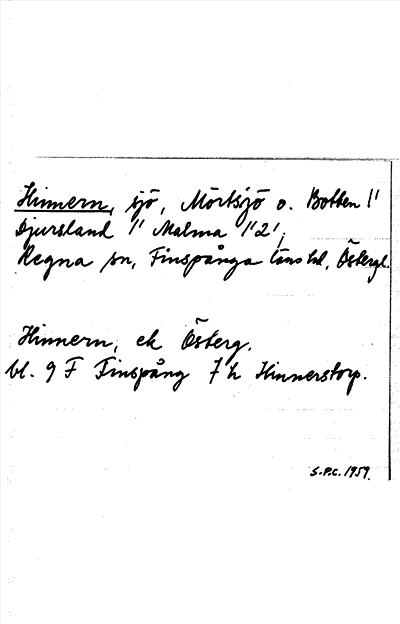 Hinnern, sjö, Mörtsjö o. Botten 1/1
Djursland 1/1 Malma 1/2;
Regna sn, Finspånga läns hd, Östergl.
Hinnern, ek Österg.
bl. 9 F Finspång 7 h Hinnerstorp.
S.P.C. 1959.